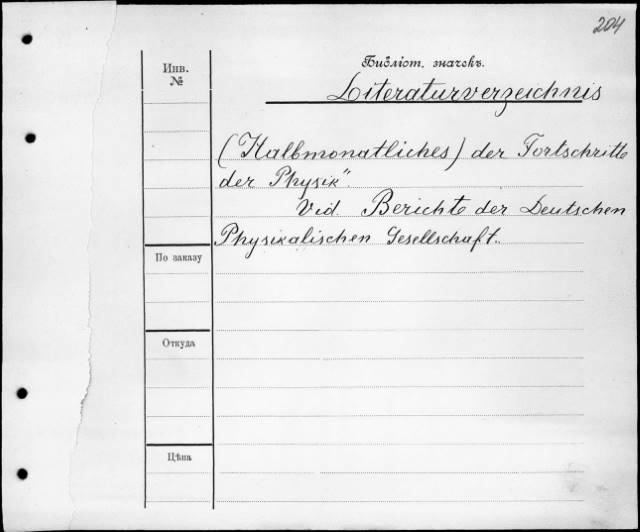 204
Библіот. значокъ.
Инв.
№
Literaturverzeichnis
(Halbmonatliches) der Fortschritte
der Physik".
Vid. Berichte der Deutschen
Physikalischen Gesellschaft.
По заказу
Откуда
Цѣна